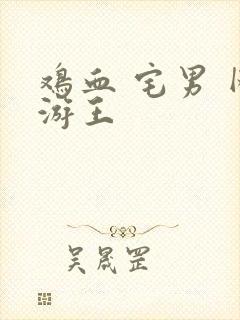 鸡血 宅男
游王
吴晟罡